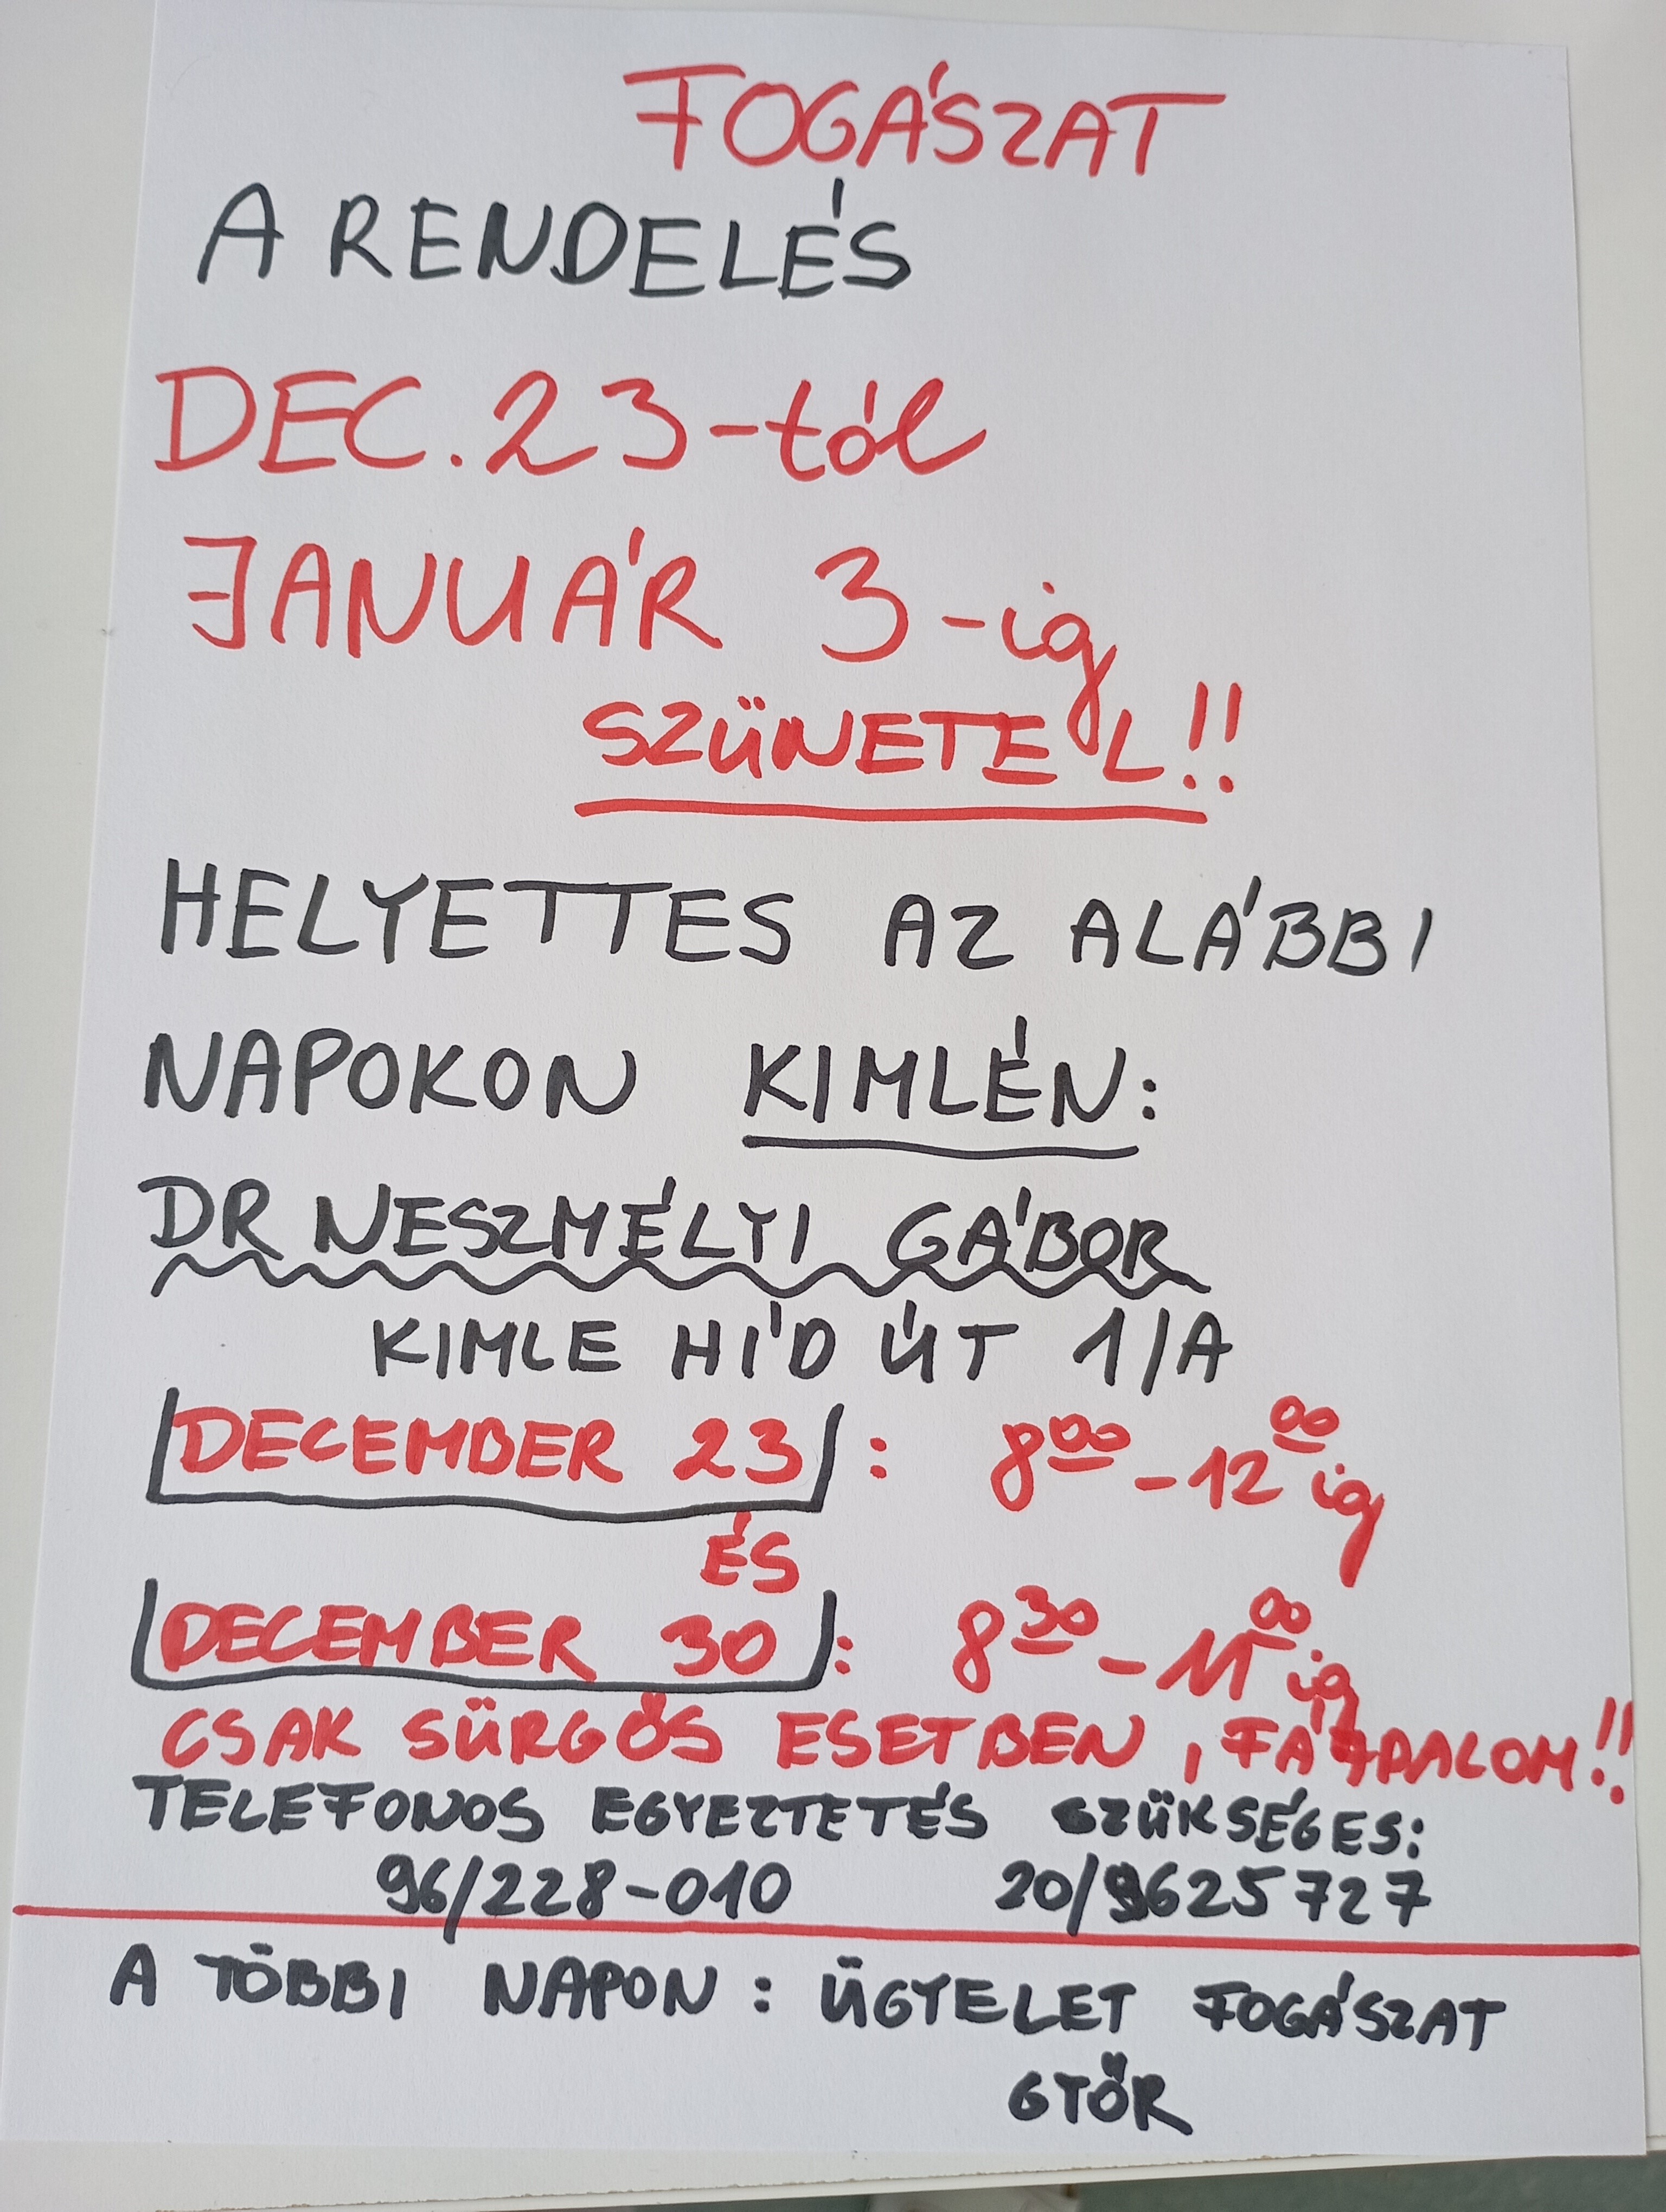 FOGÁSZAT
A RENDELÉS
DEC. 23-tól
JANUÁR 3-ig
SZÜNETEL!!
HELYETTES AZ ALÁBBI
NAPOKON KIMLÉN:
DR NESZMÉLYI GÁBOR
KIMLE HÍD ÚT 1/A
DECEMBER 23: 8⁰⁰-12⁰⁰ig
ÉS
DECEMBER 30: 8³⁰-11⁰⁰ig
CSAK SÜRGŐS ESETBEN, FÁJDALOM!!
TELEFONOS EGYEZTETÉS SZÜKSÉGES:
96/228-010 20/9625727
A TÖBBI NAPON: ÜGYELET FOGÁSZAT
GYŐR